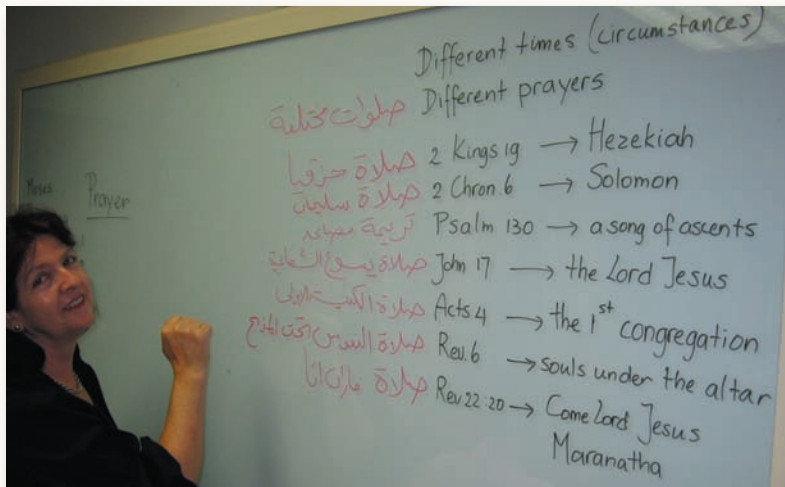 Different times (circumstances)
صلوات مختلفة Different prayers
صلاة حزقيا 2 Kings 19 → Hezekiah
صلاة سليمان 2 Chron. 6 → Solomon
ترنيمة مصاعد Psalm 130 → a song of ascents
صلاة يسوع الشفاعية John 17 → the Lord Jesus
صلاة الكنيسة الاولى Acts 4 → the 1st congregation
صلاة النفوس تحت المذبح Rev. 6 → souls under the altar
صلاة ماران اثا Rev 22:20 → Come Lord Jesus
Maranatha
Moses
Prayer